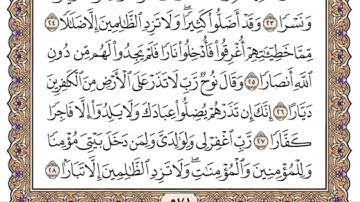 وَنَسْرًا ٢٣ وَقَدْ أَضَلُّوا۟ كَثِيرًا ۖ وَلَا تَزِدِ ٱلظَّـٰلِمِينَ إِلَّا ضَلَـٰلًا ٢٤
مِّمَّا خَطِيٓـَٔـٰتِهِمْ أُغْرِقُوا۟ فَأُدْخِلُوا۟ نَارًا فَلَمْ يَجِدُوا۟ لَهُم مِّن دُونِ
ٱللَّهِ أَنصَارًا ٢٥ وَقَالَ نُوحٌ رَّبِّ لَا تَذَرْ عَلَى ٱلْأَرْضِ مِنَ ٱلْكَـٰفِرِينَ
دَيَّارًا ٢٦ إِنَّكَ إِن تَذَرْهُمْ يُضِلُّوا۟ عِبَادَكَ وَلَا يَلِدُوٓا۟ إِلَّا فَاجِرًا
كَفَّارًا ٢٧ رَّبِّ ٱغْفِرْ لِى وَلِوَٰلِدَىَّ وَلِمَن دَخَلَ بَيْتِىَ مُؤْمِنًا
وَلِلْمُؤْمِنِينَ وَٱلْمُؤْمِنَـٰتِ ۖ وَلَا تَزِدِ ٱلظَّـٰلِمِينَ إِلَّا تَبَارًۢا ٢٨
٥٧١